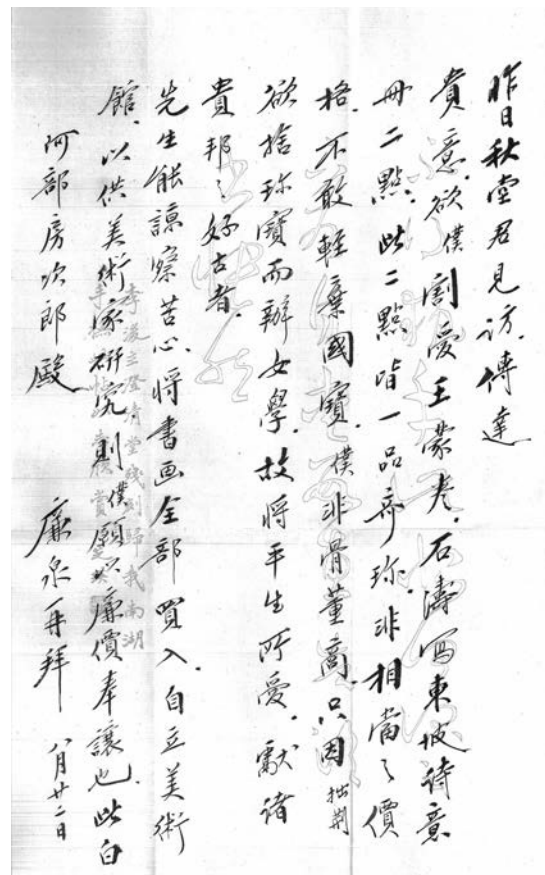 昨日秋堂君見訪.傳達
貴意.欲僕割愛王蒙卷.石濤寫東坡詩意
冊二點.此二點皆一品奇珍.非相當之價
格.不敢輕棄國寶.僕非骨董商.只因拙荆
欲捨珍寶而辦女學.故將平生所愛.獻諸
貴邦之好古者.
先生能諒察苦心.將書画全部買入.自立美術
館.以供美術家研究.則僕願以廉價奉讓也.此白
阿部房次郎殿 廉泉再拜 八月廿二日